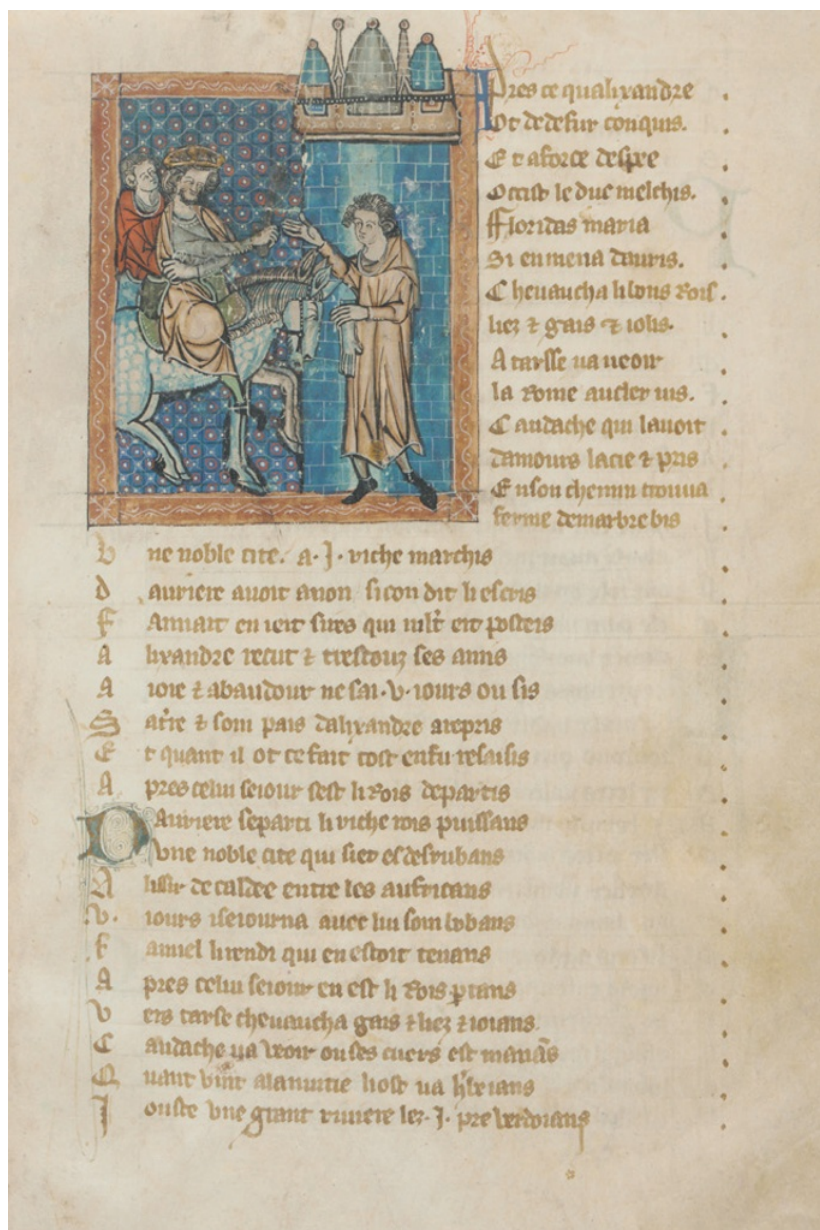 Apres ce qualixandre
Ot dedefur conquis.
Et aforce despee
Occist le duc melchis.
Floridas maria
Si enmena dauris.
Cheuaucha li bons rois.
liez ⁊ gais ⁊ iolis.
A tarsse ua ueoir
la dame aucler uis.
Candache qui lauoit
damours lacie ⁊ pris
Enson chemin trouua
ferme demarbre bis
Vne noble cite. a .I. riche marchis
dauriere auoit anon si con dit li escris
li xandre recut ⁊ trestouz ses amis
A ioie ⁊ abaudour ne sai .v. iours ou sis
Et quant il ot ce fait tost enfu resaisis
Apres celui seiour sest li rois departis
Dauriere separti li riche rois puissans
Vne noble cite qui siet es desrubans
Alissir de caldee entre les aufricans
.v. iours iseiourna auec lui som lybans
Famel li rendi qui en estoit tenans
Apres celui seiour en est li rois ꝑtans
Vers tarse cheuaucha gais ⁊ liez ⁊ ioians.
Candache ua veoir ou ses cuers est
Quant vint alanuitie lost ua
Iouste vne grant riuiere lez .I. pre verdoians